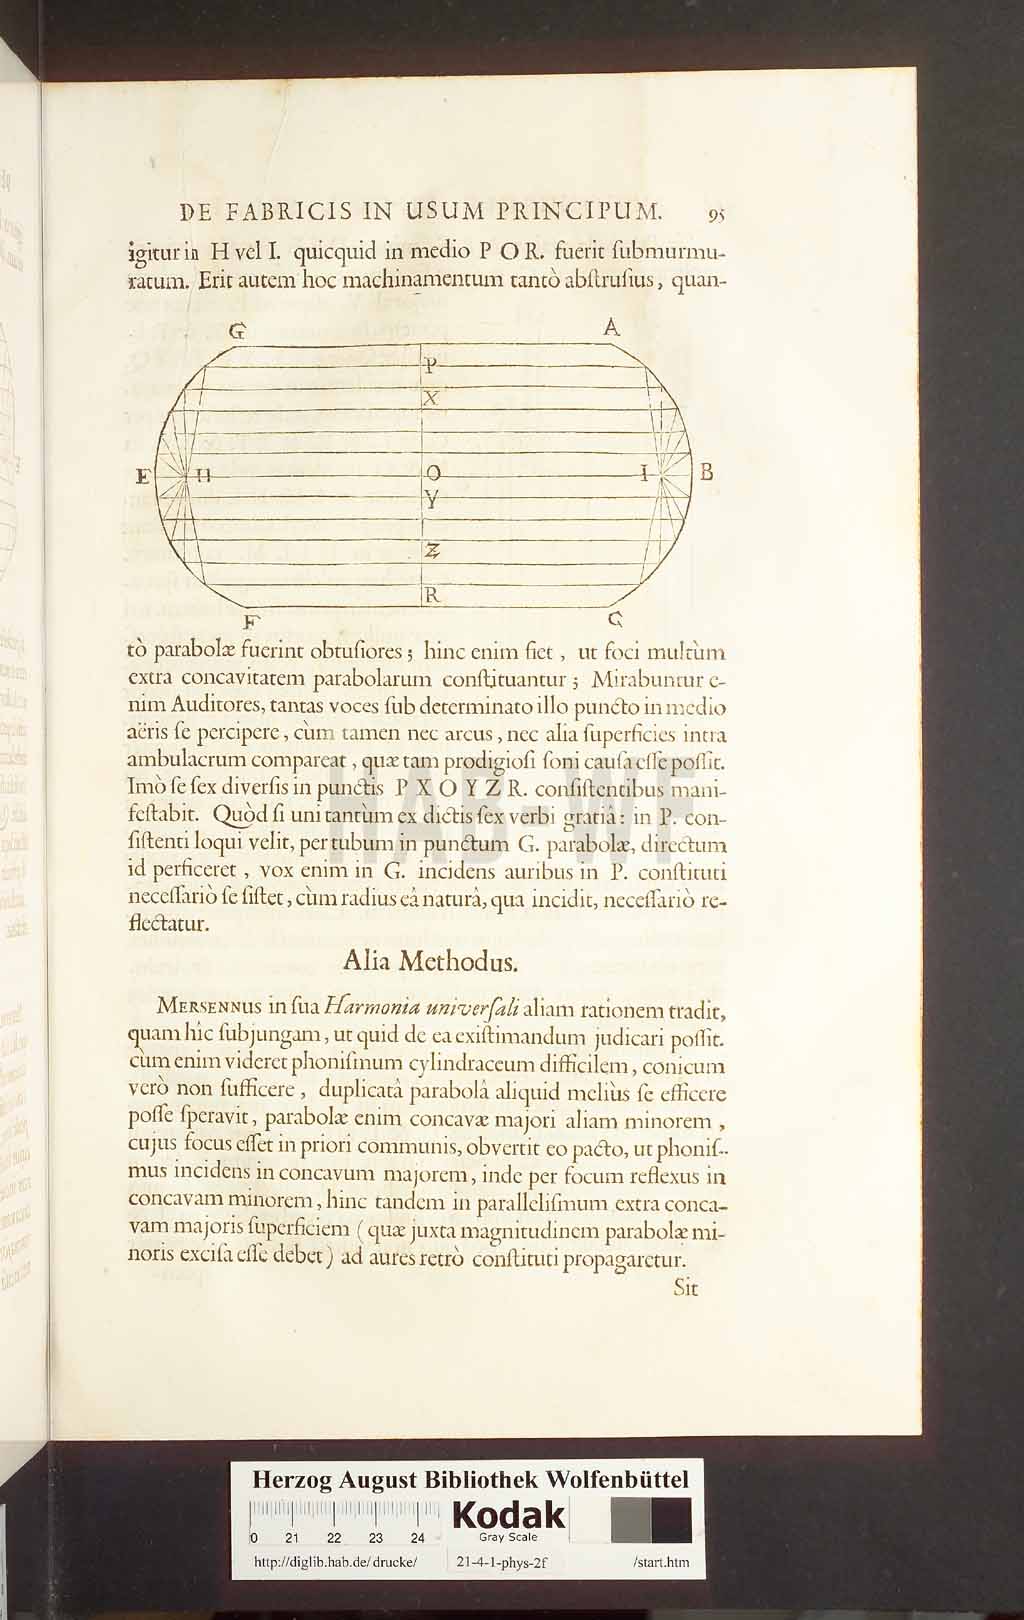 DE FABRICIS IN USUM PRINCIPUM. 95
igitur in H vel I. quicquid in medio P O R. fuerit ſubmurmu-
ratum. Erit autem hoc machinamentum tantò abſtruſius, quan-
G A
P
X
E H O I B
Y
Z
R
F C
tò parabolæ fuerint obtuſiores; hinc enim fiet, ut foci multùm
extra concavitatem parabolarum conſtituantur; Mirabuntur e-
nim Auditores, tantas voces ſub determinato illo puncto in medio
aëris ſe percipere, cùm tamen nec arcus, nec alia ſuperficies intra
ambulacrum compareat, quæ tam prodigioſi ſoni cauſa eſſe poſſit.
Imò ſe ſex diverſis in punctis P X O Y Z R. conſiſtentibus mani-
feſtabit. Quòd ſi uni tantùm ex dictis ſex verbi gratiâ: in P. con-
ſiſtenti loqui velit, per tubum in punctum G. parabolæ, directum
id perficeret, vox enim in G. incidens auribus in P. conſtituti
neceſſariò ſe ſiſtet, cùm radius eâ naturâ, qua incidit, neceſſariò re-
flectatur.
Alia Methodus.
MERSENNUS in ſua Harmonia univerſali aliam rationem tradit,
quam hîc ſubjungam, ut quid de ea exiſtimandum judicari poſſit.
cùm enim videret phoniſmum cylindraceum difficilem, conicum
verò non ſufficere, duplicatâ parabolâ aliquid meliùs ſe efficere
poſſe ſperavit, parabolæ enim concavæ majori aliam minorem,
cujus focus eſſet in priori communis, obvertit eo pacto, ut phoniſ-
mus incidens in concavum majorem, inde per focum reflexus in
concavam minorem, hinc tandem in paralleliſmum extra conca-
vam majoris ſuperficiem (quæ juxta magnitudinem parabolæ mi-
noris exciſa eſſe debet) ad aures retrò conſtituti propagaretur.
Sit
HAB-WF
Herzog August Bibliothek Wolfenbüttel
0 21 22 23 24
Kodak
Gray Scale
http://diglib.hab.de/drucke/ 21-4-1-phys-2f /start.htm